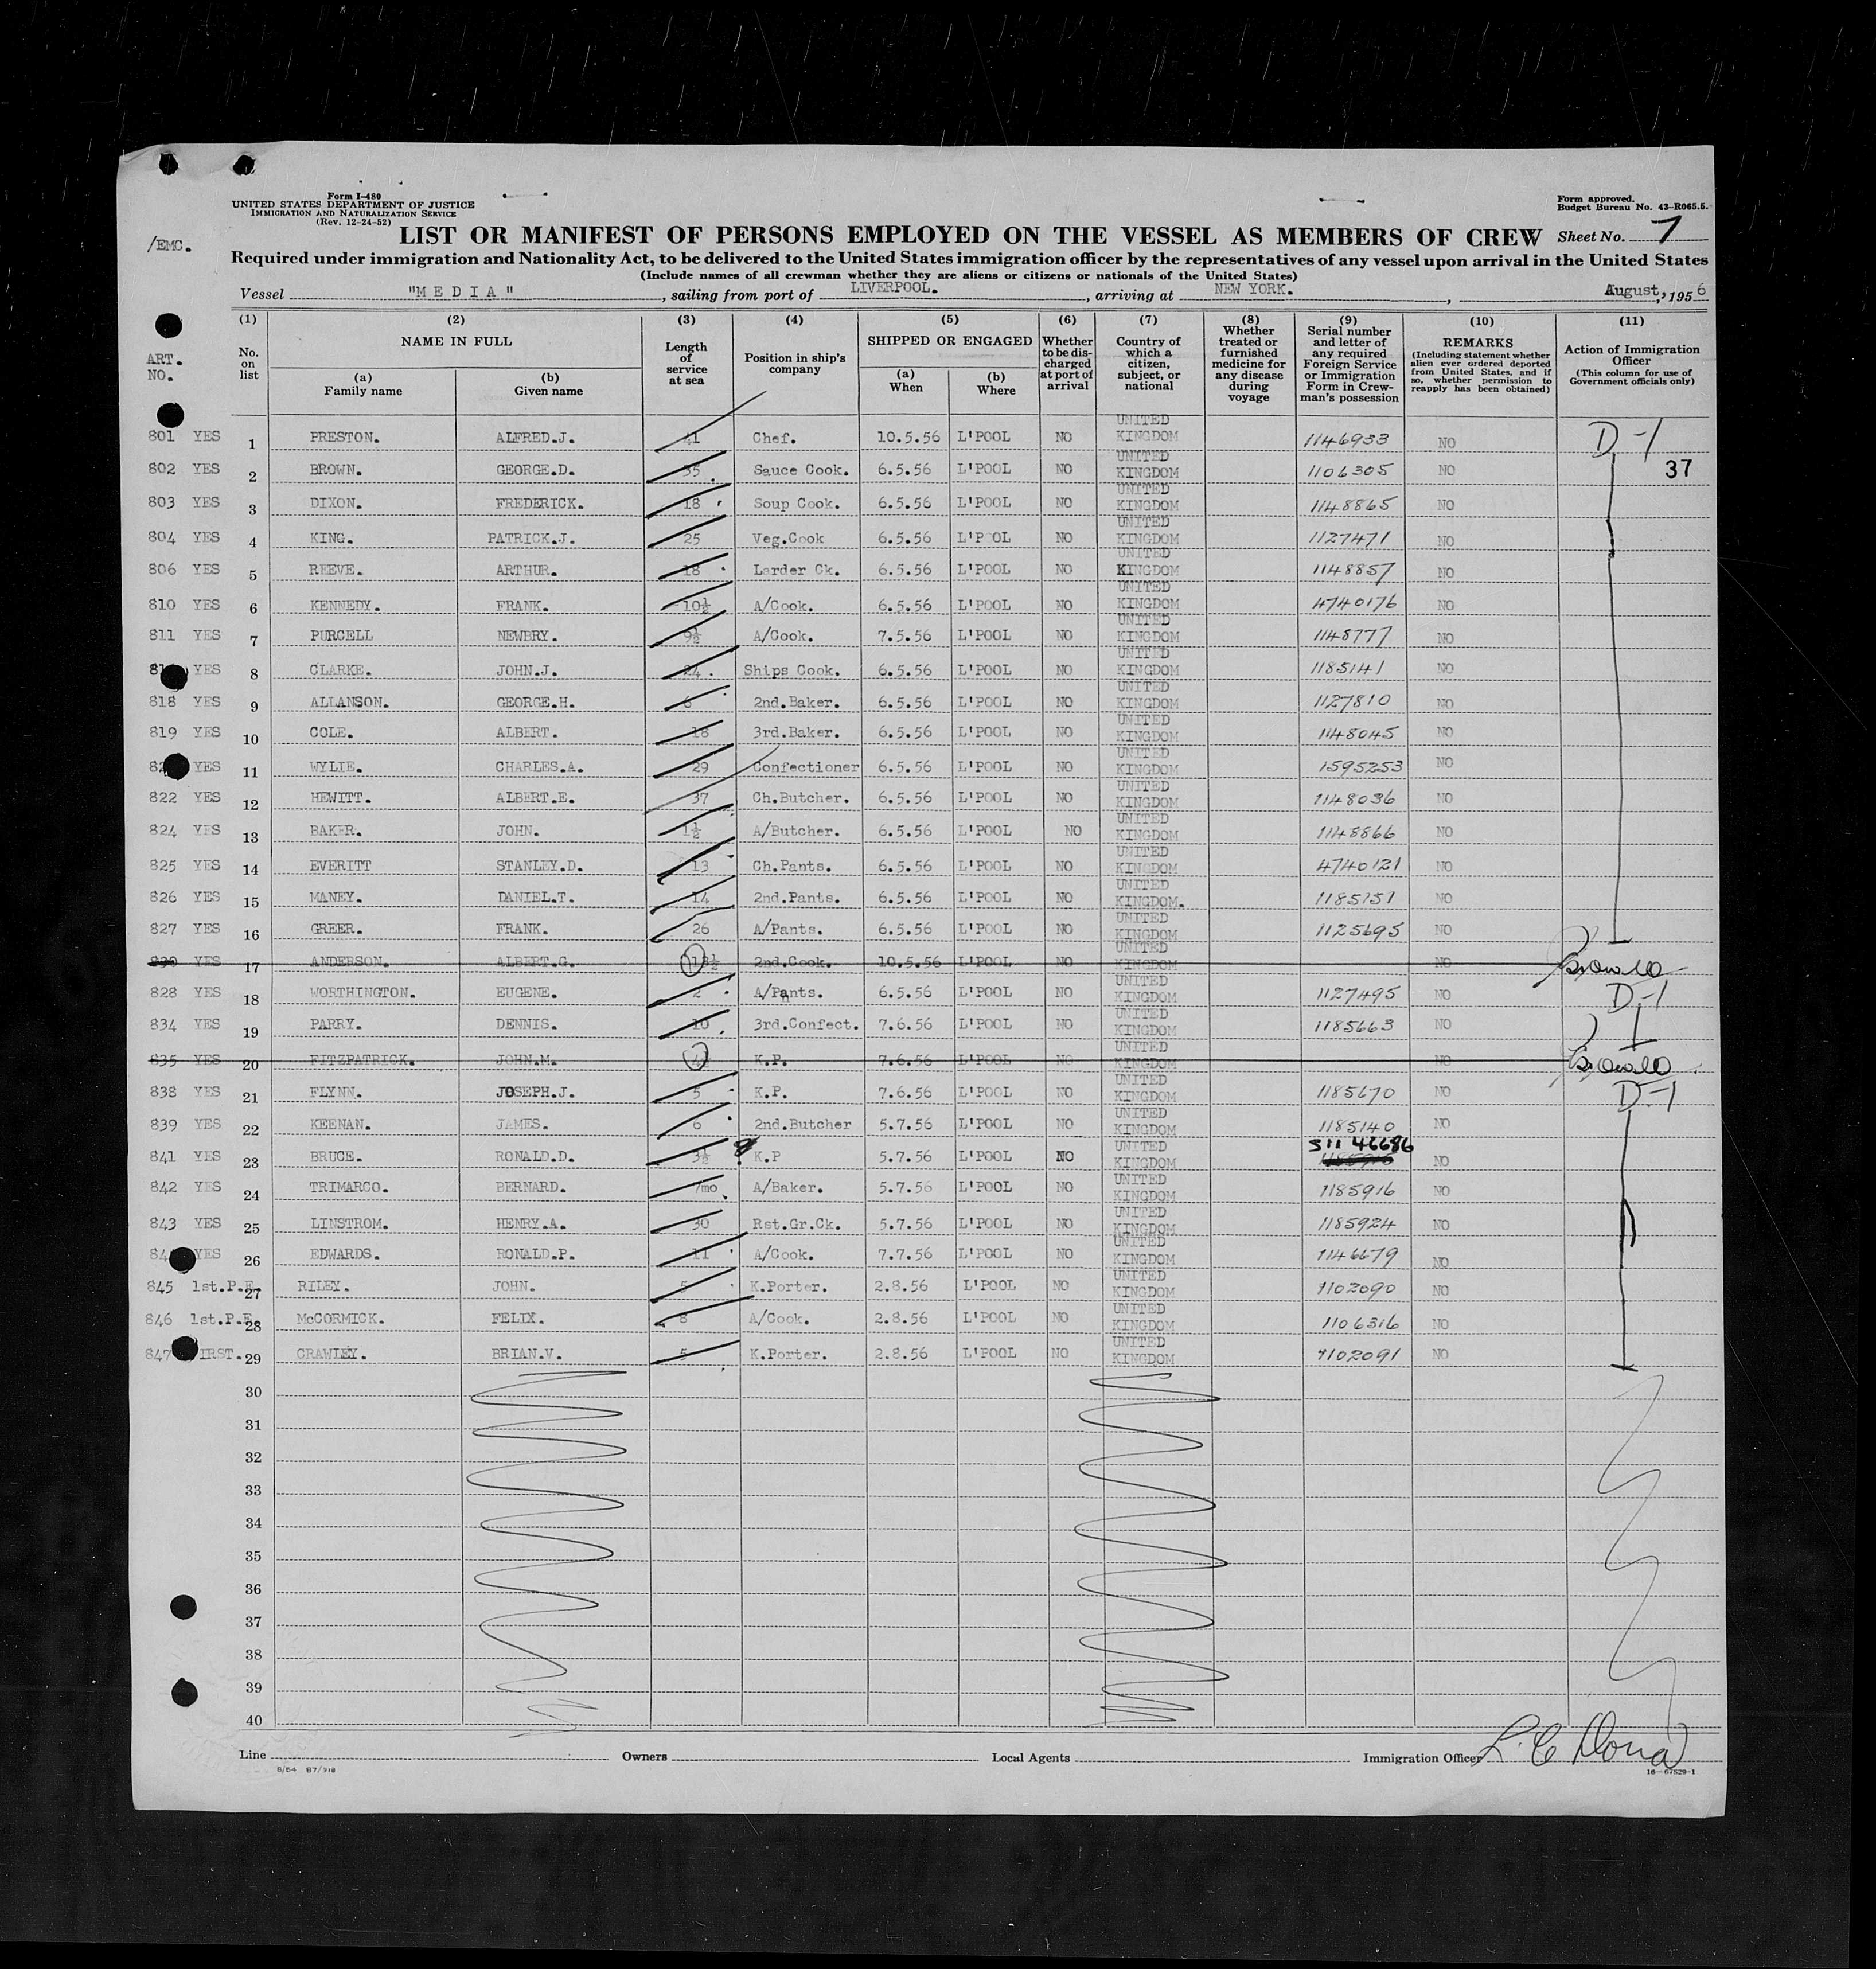 Form I-480
UNITED STATES DEPARTMENT OF JUSTICE
IMMIGRATION AND NATURALIZATION SERVICE
(Rev. 12-24-52)
Form approved.
Budget Bureau No. 43-R065.5.
/EMC.
LIST OR MANIFEST OF PERSONS EMPLOYED ON THE VESSEL AS MEMBERS OF CREW Sheet No. 7
Required under immigration and Nationality Act, to be delivered to the United States immigration officer by the representatives of any vessel upon arrival in the United States
(Include names of all crewman whether they are aliens or citizens or nationals of the United States)
Vessel "MEDIA", sailing from port of LIVERPOOL., arriving at NEW YORK., August, 1956
ART. NO.
(1) No. on list
(2) NAME IN FULL (a) Family name (b) Given name
(3) Length of service at sea
(4) Position in ship's company
(5) SHIPPED OR ENGAGED (a) When (b) Where
(6) Whether to be discharged at port of arrival
(7) Country of which a citizen, subject, or national
(8) Whether treated or furnished medicine for any disease during voyage
(9) Serial number and letter of any required Foreign Service or Immigration Form in Crewman's possession
(10) REMARKS (Including statement whether alien ever ordered deported from United States, and if so, whether permission to reapply has been obtained)
(11) Action of Immigration Officer (This column for use of Government officials only)
801 YES 1 PRESTON. ALFRED.J. 41 Chef. 10.5.56 L'POOL NO UNITED KINGDOM 1146933 NO D-1
802 YES 2 BROWN. GEORGE.D. 35 Sauce Cook. 6.5.56 L'POOL NO UNITED KINGDOM 1106305 NO 37
803 YES 3 DIXON. FREDERICK. 18 Soup Cook. 6.5.56 L'POOL NO UNITED KINGDOM 1148865 NO
804 YES 4 KING. PATRICK.J. 25 Veg.Cook 6.5.56 L'POOL NO UNITED KINGDOM 1127471 NO
806 YES 5 REEVE. ARTHUR. 18 Larder Ck. 6.5.56 L'POOL NO UNITED KINGDOM 1148857 NO
810 YES 6 KENNEDY. FRANK. 10½ A/Cook. 6.5.56 L'POOL NO UNITED KINGDOM 4740176 NO
811 YES 7 PURCELL NEWBRY. 9½ A/Cook. 7.5.56 L'POOL NO UNITED KINGDOM 1148777 NO
YES 8 CLARKE. JOHN.J. 24. Ships Cook. 6.5.56 L'POOL NO UNITED KINGDOM 1185141 NO
818 YES 9 ALLANSON. GEORGE.H. 6 2nd.Baker. 6.5.56 L'POOL NO UNITED KINGDOM 1127810 NO
819 YES 10 COLE. ALBERT. 18 3rd.Baker. 6.5.56 L'POOL NO UNITED KINGDOM 1148045 NO
YES 11 WYLIE. CHARLES.A. 29 Confectioner 6.5.56 L'POOL NO UNITED KINGDOM 1595253 NO
822 YES 12 HEWITT. ALBERT.E. 37 Ch.Butcher. 6.5.56 L'POOL NO UNITED KINGDOM 1148036 NO
824 YES 13 BAKER. JOHN. 1½ A/Butcher. 6.5.56 L'POOL NO UNITED KINGDOM 1148866 NO
825 YES 14 EVERITT STANLEY.D. 13 Ch.Pants. 6.5.56 L'POOL NO UNITED KINGDOM 4740121 NO
826 YES 15 MANEY. DANIEL.T. 14 2nd.Pants. 6.5.56 L'POOL NO UNITED KINGDOM. 1185151 NO
827 YES 16 GREER. FRANK. 26 A/Pants. 6.5.56 L'POOL NO UNITED KINGDOM 1125695 NO
830 YES 17 ANDERSON. ALBERT.G. 2nd.Cook. 10.5.56 L'POOL NO UNITED KINGDOM NO
828 YES 18 WORTHINGTON. EUGENE. 2 A/Pants. 6.5.56 L'POOL NO UNITED KINGDOM 1127495 NO D-1
834 YES 19 PARRY. DENNIS. 10 3rd.Confect. 7.6.56 L'POOL NO UNITED KINGDOM 1185663 NO
835 YES 20 FITZPATRICK. JOHN.M. K.P. 7.6.56 L'POOL NO UNITED KINGDOM NO
838 YES 21 FLYNN. JOSEPH.J. 5 K.P. 7.6.56 L'POOL NO UNITED KINGDOM 1185670 NO D-1
839 YES 22 KEENAN. JAMES. 6 2nd.Butcher 5.7.56 L'POOL NO UNITED KINGDOM 1185140 NO
841 YES 23 BRUCE. RONALD.D. 3½ K.P 5.7.56 L'POOL NO UNITED KINGDOM 511 46686 NO
842 YES 24 TRIMARCO. BERNARD. 7mo A/Baker. 5.7.56 L'POOL NO UNITED KINGDOM 1185916 NO
843 YES 25 LINSTROM. HENRY.A. 30 Rst.Gr.Ck. 5.7.56 L'POOL NO UNITED KINGDOM 1185924 NO
YES 26 EDWARDS. RONALD.P. 11 A/Cook. 7.7.56 L'POOL NO UNITED KINGDOM 1146679 NO
845 1st.P.E. 27 RILEY. JOHN. 5 K.Porter. 2.8.56 L'POOL NO UNITED KINGDOM 1102090 NO
846 1st.P.E. 28 McCORMICK. FELIX. 8 A/Cook. 2.8.56 L'POOL NO UNITED KINGDOM 1106316 NO
847 29 CRAWLEY. BRIAN.V. 5 K.Porter. 2.8.56 L'POOL NO UNITED KINGDOM 1102091 NO
30
31
32
33
34
35
36
37
38
39
40
Line Owners Local Agents Immigration Officer
16-67529-1